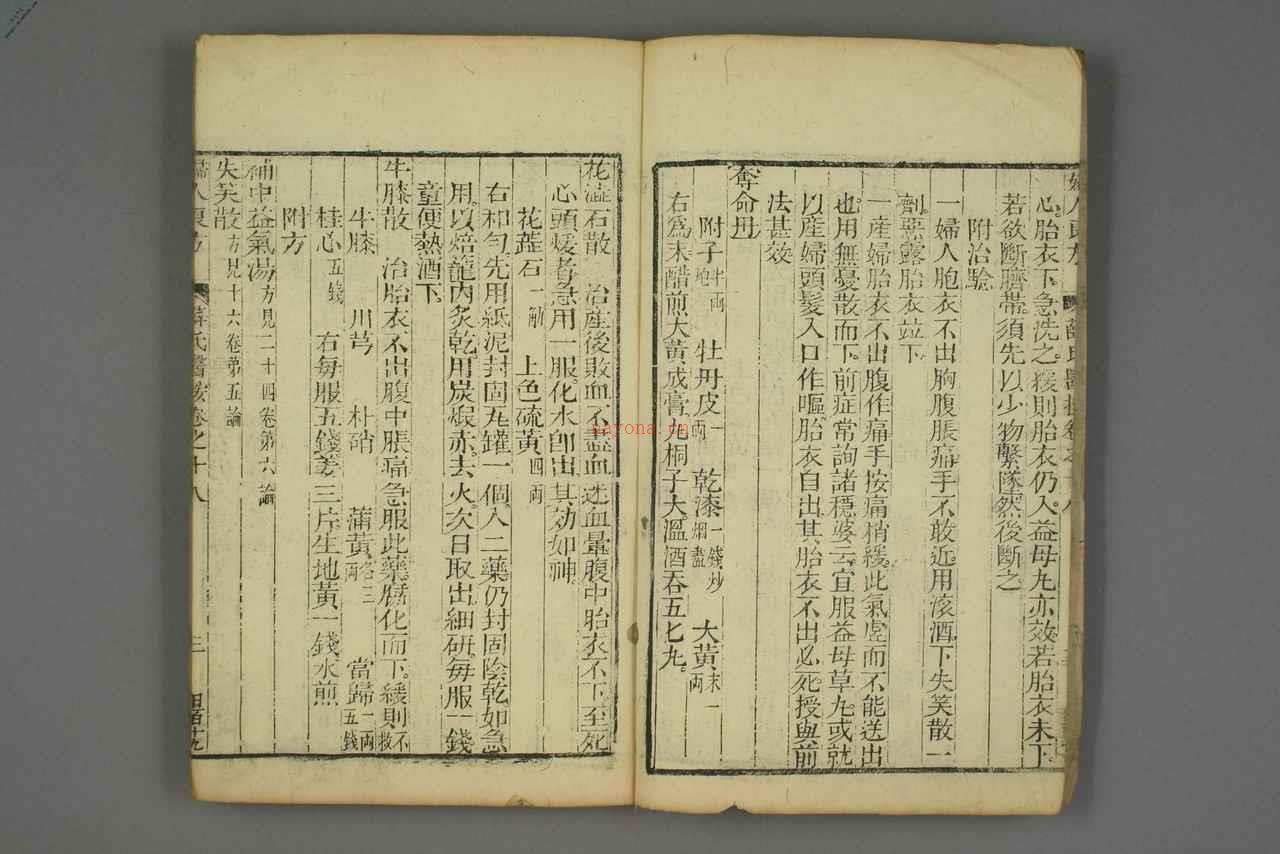 心胎衣下急洗之緩則胎衣仍入益母丸亦效若胎衣未下
若欲斷臍帶須先以少物繫墜然後斷之
附治驗
一婦人胞衣不出胸腹脹痛手不敢近用滚酒下失笑散一
劑惡露胎衣竝下
一產婦胎衣不出腹作痛手按痛稍緩此氣虛而不能送出
也用無憂散而下前症常詢諸穩婆云宜服益母草丸或就
以產婦頭髮入口作嘔胎衣自出其胎衣不出必死授與前
法甚效
奪命丹
附子半兩炮 牡丹皮一兩 乾漆一錢炒烟盡 大黃末一兩
右為末醋煎大黃成膏丸桐子大溫酒吞五七丸
花蕋石散 治產後敗血不盡血迷血暈腹中胎衣不下至死
心頭煖者急用一服化水卽出其効如神
花蕋石一觔 上色硫黃四兩
右和勻先用紙泥封固瓦罐一個入二藥仍封固陰乾如急
用以焙籠內炙乾用炭煅赤去火次日取出細研每服一錢
童便熱酒下
牛膝散 治胎衣不出腹中脹痛急服此藥腐化而下緩則不救
牛膝 川芎 朴硝 蒲黃各三兩 當歸一兩五錢
桂心五錢 右每服五錢姜三片生地黃一錢水煎
附方
補中益氣湯方見二十四卷第六論
失笑散方見十六卷第五論
婦人良方 薛氏醫按卷之十八 三
nayona.cn